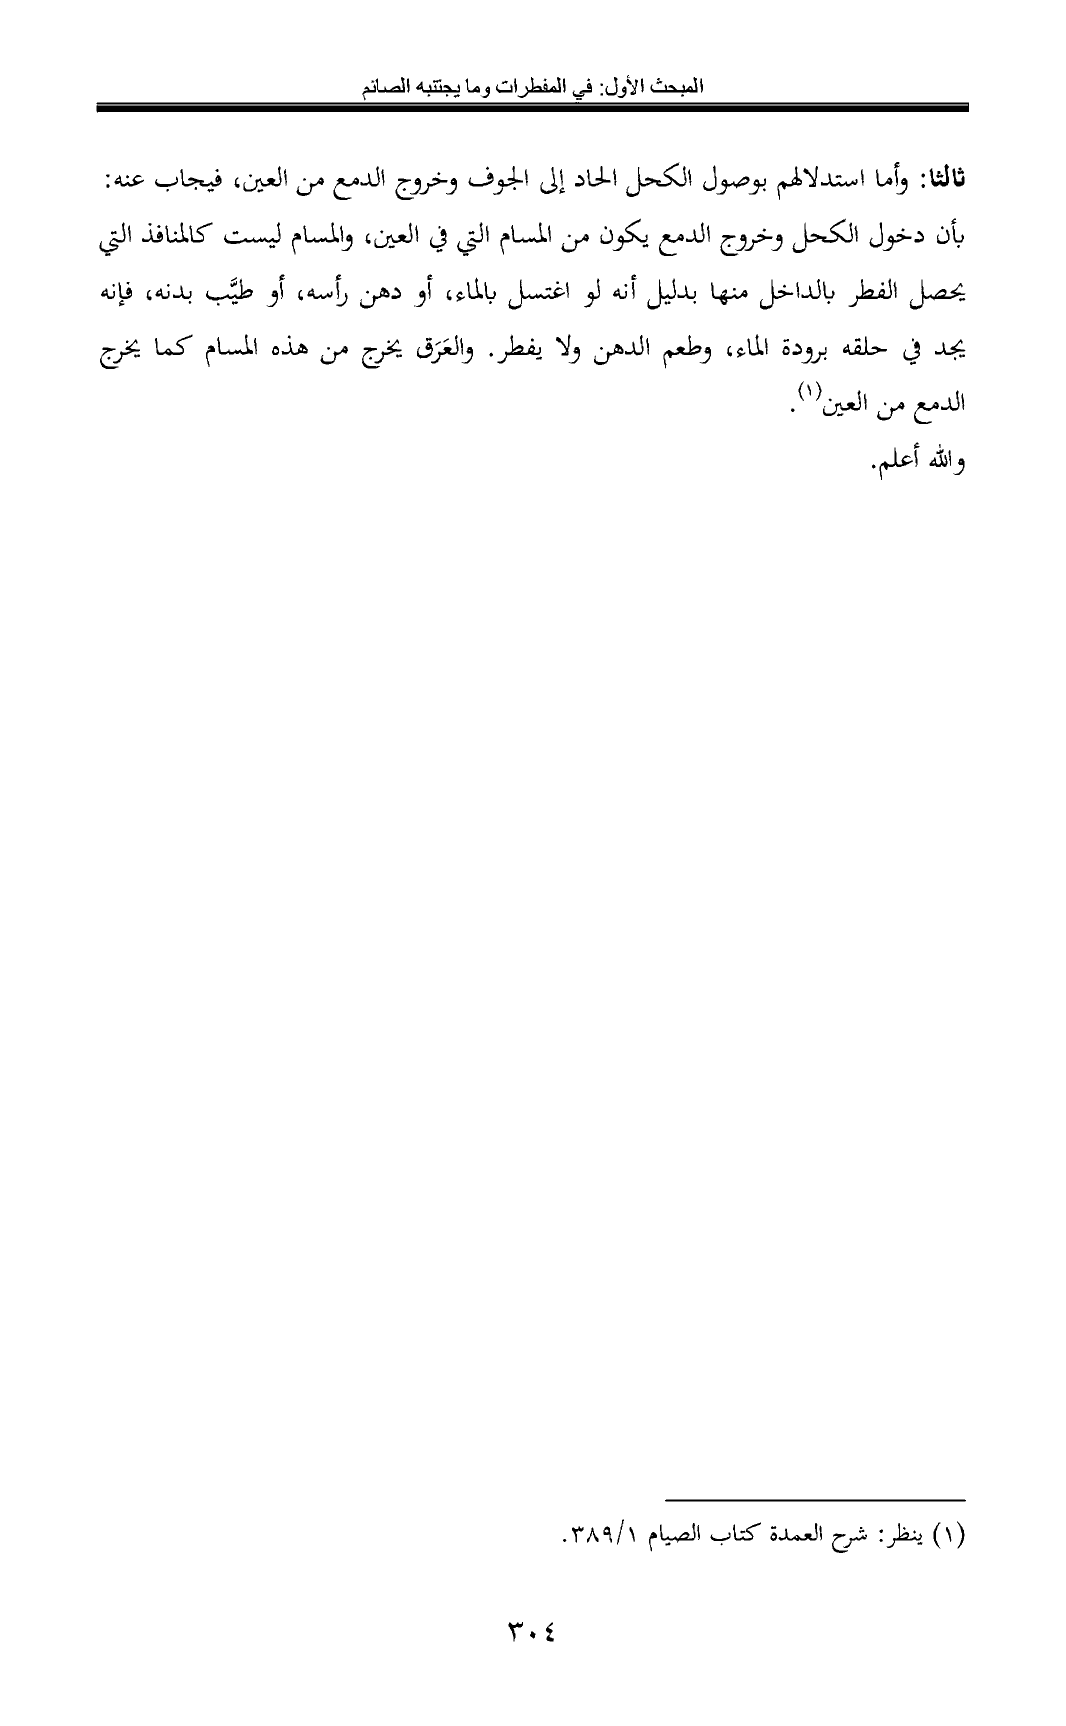 المبحث الأول: في المفطرات وما يجتنبه الصائم
ثالثا: وأما استدلالهم بوصول الكحل الحاد إلى الجوف وخروج الدمع من العين، فيجاب عنه:
بأن دخول الكحل وخروج الدمع يكون من المسام التي في العين، والمسام ليست كالمنافذ التي
يحصل الفطر بالداخل منها بدليل أنه لو اغتسل بالماء، أو دهن رأسه، أو طيَّب بدنه، فإنه
يجد في حلقه برودة الماء، وطعم الدهن ولا يفطر. والعَرَق يخرج من هذه المسام كما يخرج
الدمع من العين(١).
والله أعلم.
(١) ينظر: شرح العمدة كتاب الصيام ٣٨٩/١.
٣٠٤